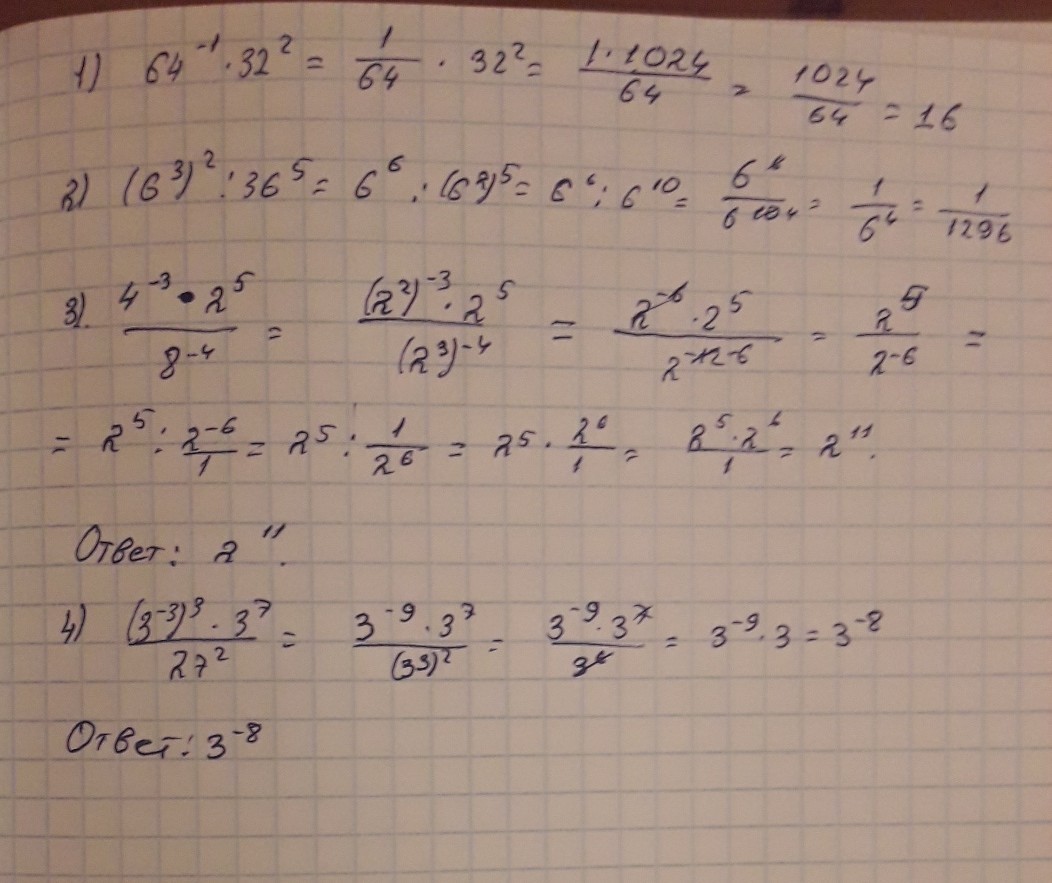 1) 64⁻¹ · 32² = 1/64 · 32² = (1 · 1024)/64 = 1024/64 = 16
2) (6³)² : 36⁵ = 6⁶ : (6²)⁵ = 6⁶ : 6¹⁰ = 6⁶/6¹⁰ ⁴ = 1/6⁴ = 1/1296
3) (4⁻³ · 2⁵)/8⁻⁴ = ((2²)⁻³ · 2⁵)/(2³)⁻⁴ = (2⁻⁶ · 2⁵)/2⁻¹² ⁻⁶ = 2⁵/2⁻⁶ =
= 2⁵ : 2⁻⁶/1 = 2⁵ : 1/2⁶ = 2⁵ · 2⁶/1 = (2⁵ · 2⁶)/1 = 2¹¹.
Ответ: 2¹¹.
4) ((3⁻³)³ · 3⁷)/27² = (3⁻⁹ · 3⁷)/(3³)² = (3⁻⁹ · 3⁷)/3⁶ = 3⁻⁹ · 3 = 3⁻⁸
Ответ: 3⁻⁸